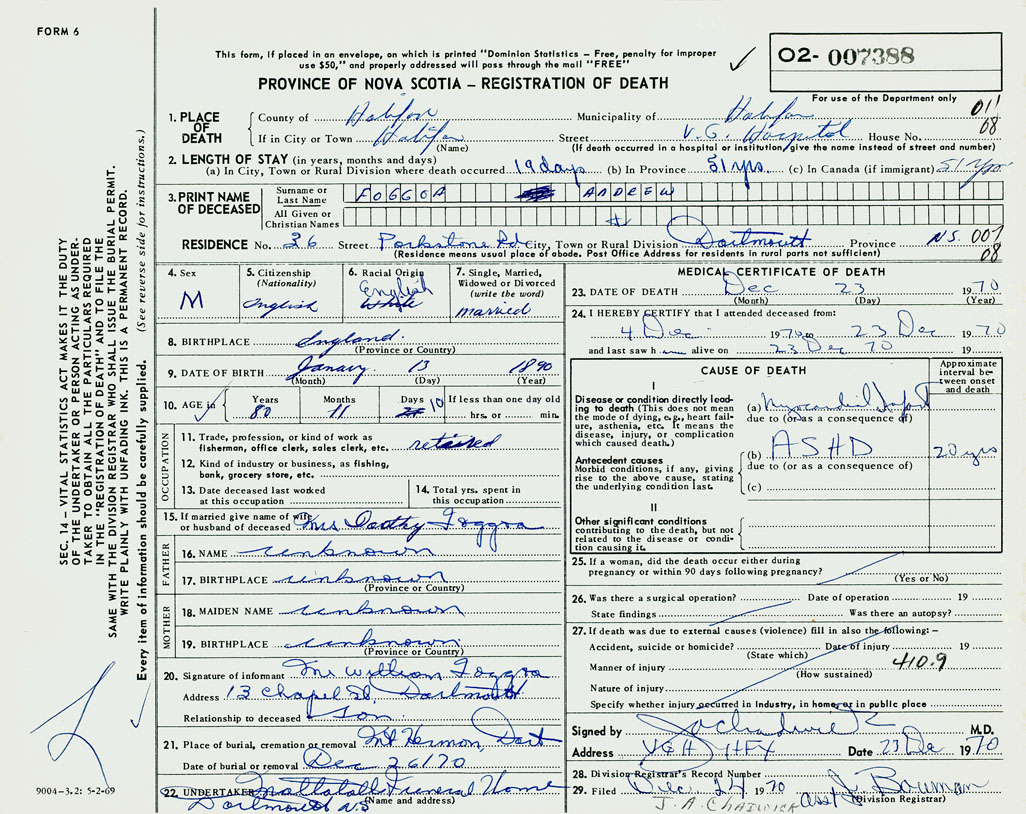 FORM 6
This form, if placed in an envelope, on which is printed "Dominion Statistics – Free, penalty for improper
use $50," and properly addressed will pass through the mail "FREE"
PROVINCE OF NOVA SCOTIA – REGISTRATION OF DEATH
02- 007388
For use of the Department only
011
08
1. PLACE OF DEATH
County of Halifax Municipality of Halifax
If in City or Town Halifax Street V.G. Hospital House No.
(Name) (If death occurred in a hospital or institution, give the name instead of street and number)
2. LENGTH OF STAY (in years, months and days)
(a) In City, Town or Rural Division where death occurred 19 days (b) In Province 51 yrs. (c) In Canada (if immigrant) 51 yrs.
3. PRINT NAME OF DECEASED
Surname or Last Name FOGGOA ANDREW
All Given or Christian Names
RESIDENCE No. 36 Street Parkstone Rd City, Town or Rural Division Dartmouth Province N.S. 007
(Residence means usual place of abode. Post Office Address for residents in rural parts not sufficient) 08
4. Sex
M
5. Citizenship
(Nationality)
English
6. Racial Origin
English
White
7. Single, Married,
Widowed or Divorced
(write the word)
married
8. BIRTHPLACE England.
(Province or Country)
9. DATE OF BIRTH Janary 13 1890
(Month) (Day) (Year)
10. AGE in Years 80 Months 11 Days 10 If less than one day old
hrs. or min.
OCCUPATION
11. Trade, profession, or kind of work as
fisherman, office clerk, sales clerk, etc. retaired
12. Kind of industry or business, as fishing,
bank, grocery store, etc.
13. Date deceased last worked
at this occupation
14. Total yrs. spent in
this occupation
15. If married give name of wife
or husband of deceased Mrs Doothy Foggoa
FATHER
16. NAME unknown
17. BIRTHPLACE unknown
(Province or Country)
MOTHER
18. MAIDEN NAME unknown
19. BIRTHPLACE unknown.
(Province or Country)
20. Signature of informant Mr William Foggoa
Address 13 Chapel St, Dartmouth
Relationship to deceased Son.
21. Place of burial, cremation or removal Mt Hermon, Dart
Date of burial or removal Dec 26/70
22. UNDERTAKER Mattatall Funeral Home
Dartmouth N.S (Name and address)
MEDICAL CERTIFICATE OF DEATH
23. DATE OF DEATH Dec 23 1970
(Month) (Day) (Year)
24. I HEREBY CERTIFY that I attended deceased from:
4 Dec 1970 to 23 Dec 1970
and last saw h alive on 23 Dec 70 19
CAUSE OF DEATH
Approximate interval between onset and death
I
Disease or condition directly leading to death (This does not mean the mode of dying, e.g., heart failure, asthenia, etc. It means the disease, injury, or complication which caused death.)
(a) Myocardial Infarct
due to (or as a consequence of)
Antecedent causes
Morbid conditions, if any, giving rise to the above cause, stating the underlying condition last.
(b) ASHD 20 yrs
due to (or as a consequence of)
(c)
II
Other significant conditions
contributing to the death, but not related to the disease or condition causing it.
25. If a woman, did the death occur either during
pregnancy or within 90 days following pregnancy?
(Yes or No)
26. Was there a surgical operation? Date of operation 19
State findings Was there an autopsy?
27. If death was due to external causes (violence) fill in also the following: –
Accident, suicide or homicide? Date of injury 19
(State which)
Manner of injury 410.9
(How sustained)
Nature of injury
Specify whether injury occurred in Industry, in home, or in public place
Signed by M.D.
Address VGH HFX Date 23 Dec 1970
28. Division Registrar's Record Number
29. Filed Dec 24 1970 J. Bowman
J. A. CHADWICK asst Division Registrar)
SEC. 14 – VITAL STATISTICS ACT MAKES IT THE DUTY
OF THE UNDERTAKER OR PERSON ACTING AS UNDER-
TAKER TO OBTAIN ALL THE PARTICULARS REQUIRED
IN THE "REGISTRATION OF DEATH" AND TO FILE THE
SAME WITH THE DIVISION REGISTRAR WHO SHALL ISSUE THE BURIAL PERMIT.
WRITE PLAINLY WITH UNFADING INK. THIS IS A PERMANENT RECORD.
Every item of information should be carefully supplied. (See reverse side for instructions.)
9004-3.2: 5-2-69